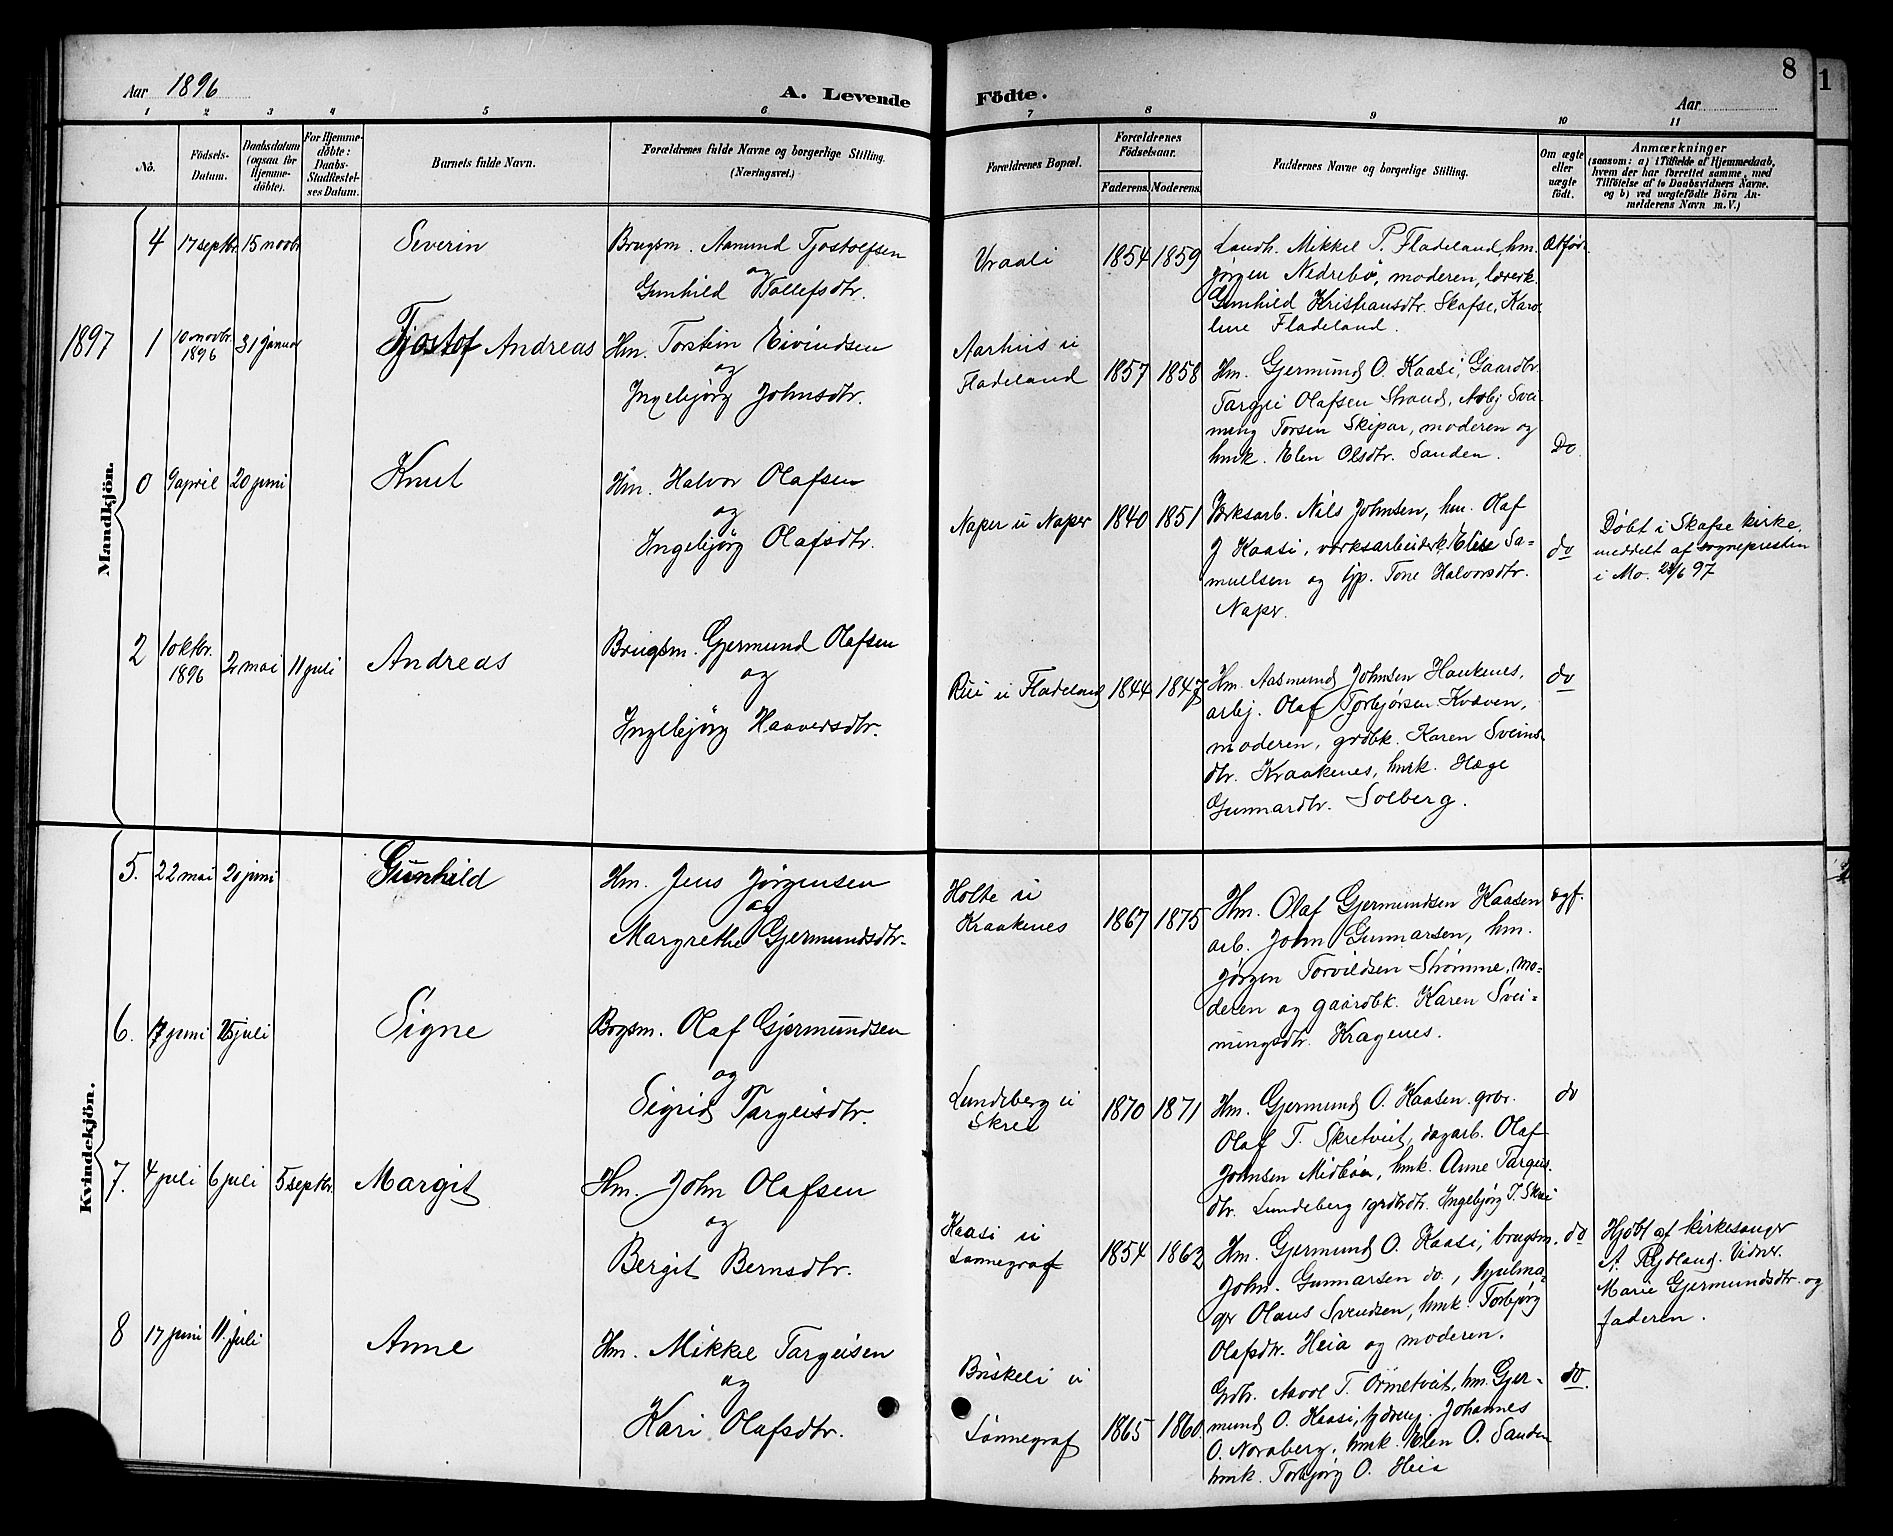 Aar 1896
A. Levende
Födte.
8
Aar
1
1 2 3 4 5 6 7 8 9 10 11
No.
Födsels-
Datum.
Daabsdatum
(ogsaa for
Hjemme-
döbte).
For Hjemme-
döbte:
Daabs-
Stadfæstel-
ses Datum.
Barnets fulde Navn.
Forældrenes fulde Navne og borgerlige Stilling.
(Næringsvei.)
Forældrenes Bopæl.
Forældrenes
Födselsaar.
Faderens. Moderens.
Faddernes Navne og borgerlige Stilling.
Om ægte
eller
uægte
födt.
Anmærkninger
(saasom: a) i Tilfælde af Hjemmedaab,
hvem der har forrettet samme, med
Tilföielse af to Daabsvidners Navne.
og b) ved uægtefödte Börn An-
melderens Navn m. V.)
Mandkjön.
4 17 septbr. 15 novbr. Severin
Brugsm. Aamund Tjostolfsen
og
Gunhild Tallefsdtr.
Vraali 1854 1859
Landh. Mikkel T. Fladeland, hm.
Jørgen Nedrebø, moderen, lærerk.
Gunhild Kristiansdtr. Skafse, Karo-
line Fladeland.
1897 1 10 novbr. 1896 31 januar Tjostof Andreas
Hm. Torstein Eivindsen
og
Ingebjörg Johnsdtr.
Aarhus u
Fladeland 1857 1858
Hm. Gjermund O. Kaasi, Gaardbr.
Targjei Olafsen Strand, Arbj Svei-
nung Torsen Skipar, moderen og
hmk. Elen Olsdtr. Sanden.
Do
0 9 april 20 juni Knut
Hm. Halvor Olafsen
og
Ingebjörg Olafsdtr.
Naper u Naper 1840 1851
Verksarb. Nils Johnsen, hm. Olaf
J Kaasi, verksarbeiderk. Elise Sa-
muelsen og tjp. Tone Halvorsdtr.
Naper.
do
Døbt i Skafse kirke,
meddelt af sognepresten
i Mo. 28/6 97
2 1 oktbr. 1896 2 mai 11 juli Andreas
Brugsm. Gjermund Olafsen
og
Ingebjörg Haaversdtr.
Rui u Fladeland 1844 1847
Hm. Aasmund Johnsen Haukenes,
arbj. Olaf Torbjørsen Kvaven,
moderen, grdbk. Karen Sveins-
dtr. Kraakenes, hmk. Hæge
Gunnardtr. Solberg.
do
Kvindekjön.
5. 22 mai 20 juni Gunhild
Hm. Jens Jørgensen
og
Margrethe Gjermundsdtr.
Holte u
Kraakenes 1867 1875
Hm. Olaf Gjermundsen Kaasen
arb. John Gunnarsen, hm.
Jørgen Torvildsen Strømme, mo-
deren og gaardbk. Karen Svei-
nungsdtr. Kragenes.
ægf.
6. 17 juni 25 juli Signe
Brgsm. Olaf Gjermundsen
og
Sigrid Targeisdtr.
Lundeberg u
Skrei 1870 1871
Hm. Gjermund O. Kaasen. grbr.
Olaf T. Skretveit, dagarb. Olaf
Johnsen Midbøen, hmk. Anne Targeis-
dtr. Lundeberg, grdbrdtr. Ingebjörg T. Skrei
do
7. 4 juli 6 juli 5 septbr. Margit
Hm. John Olafsen
og
Bergit Bernsdtr.
Kaasi u
Lonnegraf 1854 1862
Hm. Gjermund O. Kaasi, brugsm.
John. Gunnarsen do., hjulma-
ger Olaus Svendsen, hmk. Torbjørg
Olafsdtr. Heia og moderen.
do
Hjdbt af kirkesanger
A. Rydland. Vidner.
Marie Gjermundsdtr. og
faderen.
8 17 juni 11. juli Anne
Hm. Mikkel Targeisen
og
Kari Olafsdtr.
Briskeli u
Lönnegraf 1865 1860
Grdbr. Aavol T. Ormetveit, hm. Gjer-
mund O. Kaasi, Johannes
O. Noraberg, hmk. Elen O. Sanden
hmk. Torbjörg O. Heia
do.